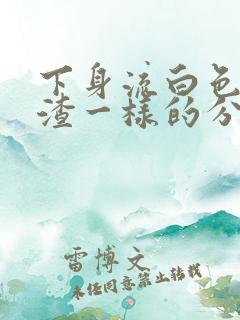 下身流白色
渣一样的分
雷博文
未经同意禁止转载